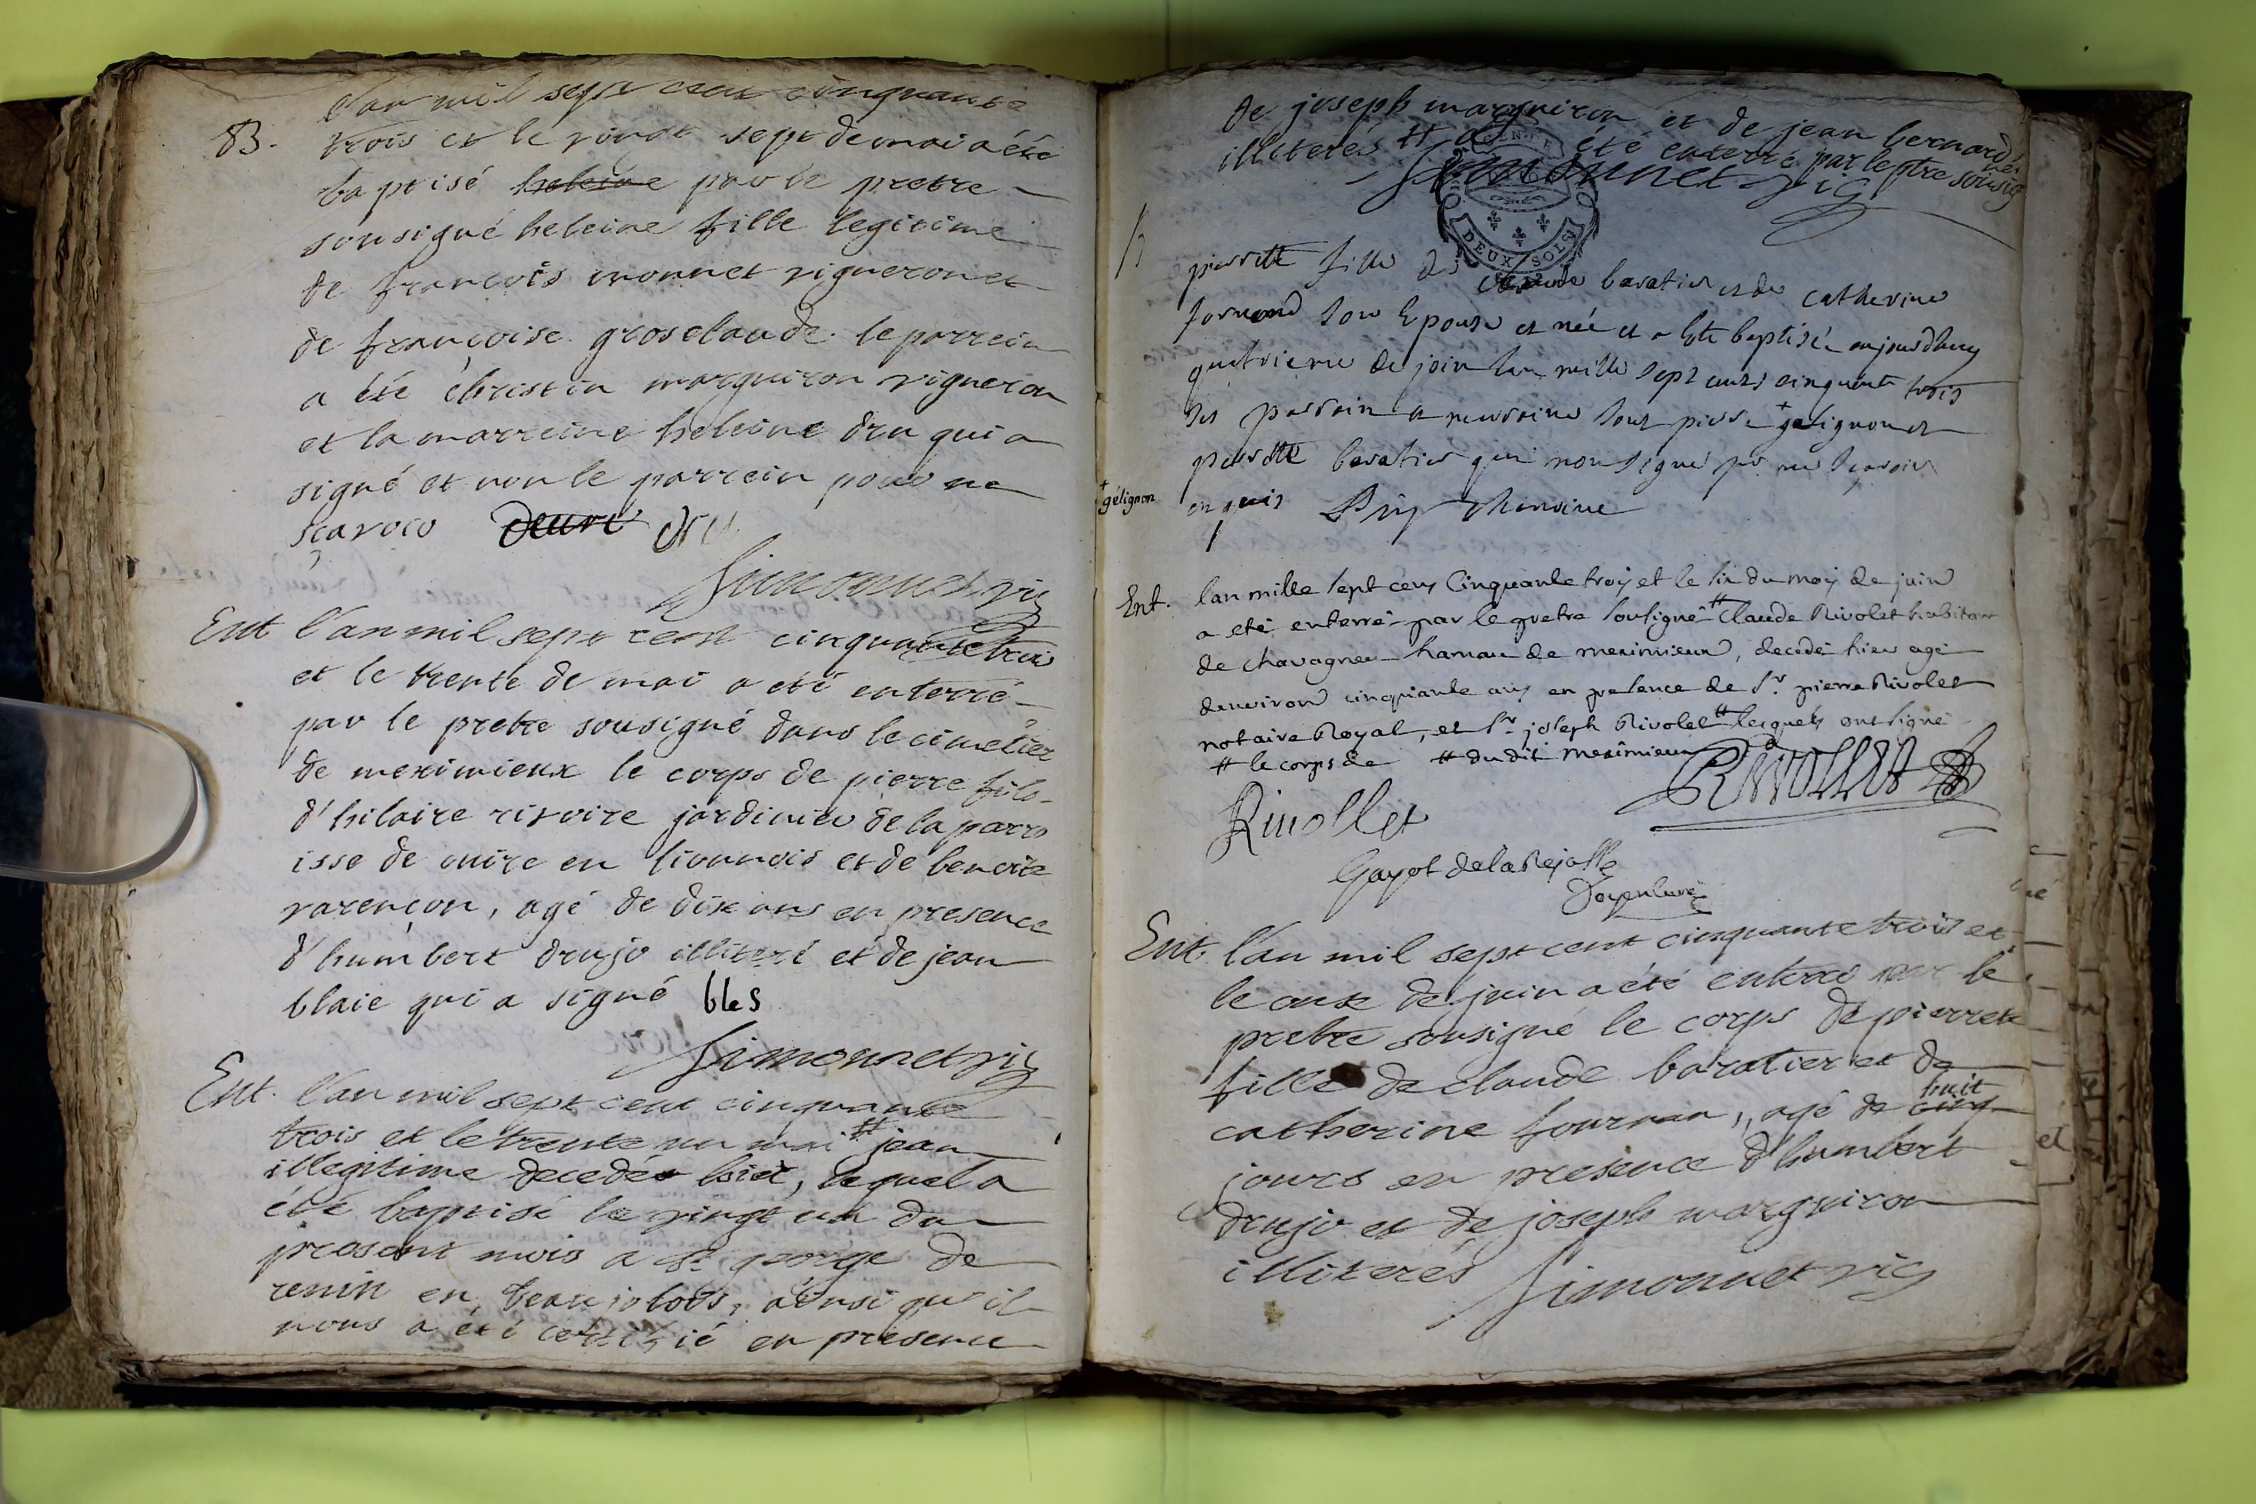 l'an mil sept cent cinquante
B. trois et le vingt sept de mai a été
baptisé heleine par le pretre
sousigné heleine fille legitime
de françois monnet vigneron et
de françoise grosclaude. le parrein
a été christin marguiron vigneron
et la marreine heleine dru qui a
signé et non le parrein pour ne
sçavoir deuve dru
Simonnet vic
Ent l'an mil sept cent cinquante trois
et le trente de mai a été enterré
par le pretre sousigné dans le cimetier
de meximieux le corps de pierre fils
d'hilaire rivoire jardinier de la parro
isse de cuire en lionnois et de benoite
varençon, agé de dix ans en presence
d'humbert drujo illiteré et de jean
blaie qui a signé bles
Simonnet vic
Ent. l'an mil sept cent cinquante
trois et le trente un mai # jean
illegitime decedé hier, lequel a
été baptisé le vingt un du
present mois a St george de
renin en beaujolois, ainsi qu'il
nous a été certifié en presence
de joseph marguiron et de jean bernard
illiterés # a été enterré par le ptre sousig
né.
Simonnet vic
DEUX SOLS
B
pierrette fille de claude baratier et de catherine
fournand son Epouse est née et a Eté baptisée aujourdhuy
quatrieme de juin lan mille sept cents cinquante trois
ses parrain et marraine sont pierre + gelignon et
pierrette baratier qui n'ont signé pr ne sçavoir
+ gélignon
enquis
Ent. lan mille sept cens Cinquante trois et le six du mois de juin
a eté enterré par le pretre sousigné # Claude Rivolet habitant
de Chavagneu hameau de meximieux, decedé hier agé
denviron cinquante ans en presence de Sr. pierre Rivolet
notaire Royal, et Sr. joseph Rivolet # lesquels ont signé
# le corps de # du dit meximieux RIVOLLET
Rivollet
Gayot de la Rejasse
Doyen curé
Ent. l'an mil sept cent cinquante trois et
le onze de juin a été enterré par le
pretre sousigné le corps de pierrete
fille de claude baratier et de
catherine fournan, agé de cinq huit
jours en presence d'humbert
drujo et de joseph marguiron
illiterés Simonnet vic